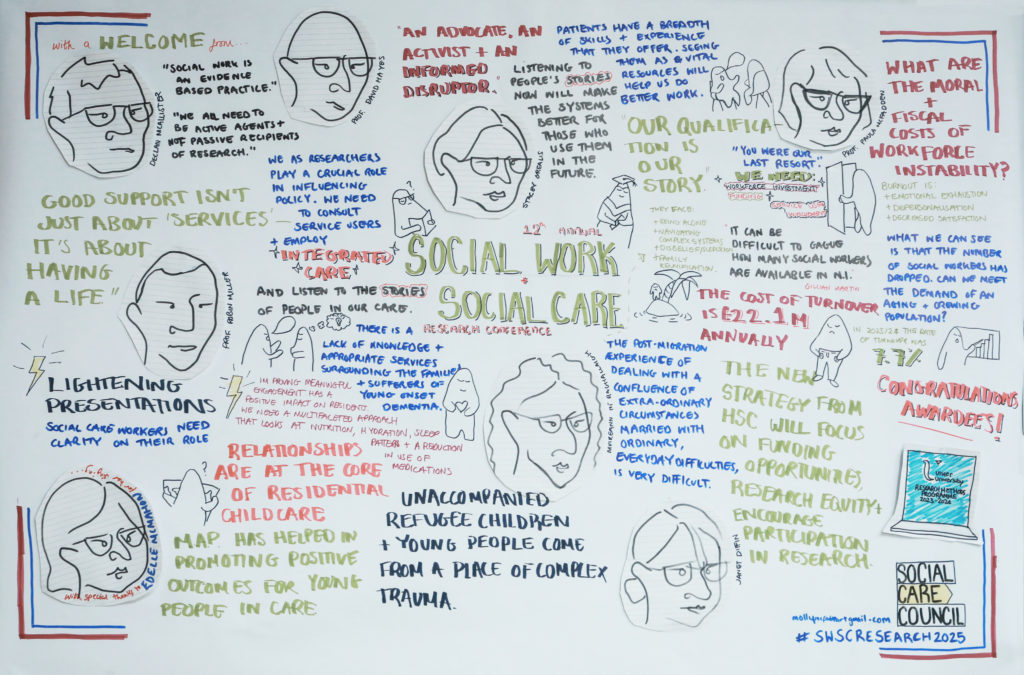 with a WELCOME from...
"SOCIAL WORK IS
AN EVIDENCE
BASED PRACTICE."
"WE ALL NEED TO
BE ACTIVE AGENTS +
NOT PASSIVE RECIPIENTS
OF RESEARCH."
DECLAN MCALLISTER
PROF. DAVID HAYES
"AN ADVOCATE, AN
ACTIVIST + AN
INFORMED
DISRUPTOR."
PATIENTS HAVE A BREADTH
OF SKILLS + EXPERIENCE
THAT THEY OFFER.. SEEING
THEM AS A VITAL
RESOURCES WILL
HELP US DO
BETTER WORK.
LISTENING TO
PEOPLE'S STORIES
NOW WILL MAKE
THE SYSTEMS
BETTER FOR
THOSE WHO
USE THEM
IN THE
FUTURE.
"OUR QUALIFICA
TION IS
OUR
STORY."
PROF. PAULA MCFADDEN
WHAT ARE
THE MORAL
+
FISCAL
COSTS OF
WORKFORCE
INSTABILITY?
BURNOUT IS:
+ EMOTIONAL EXHAUSTION
+ DEPERSONALISATION
+ DECREASED SATISFACTION
WE AS RESEARCHERS
PLAY A CRUCIAL ROLE
IN INFLUENCING
POLICY. WE NEED
TO CONSULT
SERVICE USERS
+ EMPLOY
INTEGRATED
CARE
AND LISTEN TO THE STORIES
OF PEOPLE IN OUR CARE.
GOOD SUPPORT ISN'T
JUST ABOUT 'SERVICES' —
IT'S ABOUT
HAVING
A LIFE"
PROF. ROBIN MILLER
"YOU WERE OUR
LAST RESORT"
WE NEED:
WORKFORCE INVESTMENT
FUNDING
SERVICE USER
THEY FACE:
+ BEING ALONE
+ NAVIGATING
COMPLEX SYSTEMS
+ FAMILY
IT CAN BE
DIFFICULT TO GAGUE
HOW MANY SOCIAL WORKERS
ARE AVAILABLE IN N.I.
GILLIAN MARTIN
WHAT WE CAN SEE
IS THAT THE NUMBER
OF SOCIAL WORKERS HAS
DROPPED. CAN WE MEET
THE DEMAND OF AN
AGING + GROWING
POPULATION?
12th ANNUAL
SOCIAL WORK
+
SOCIAL CARE
RESEARCH CONFERENCE
THE COST OF TURNOVER
IS £22.1M
ANNUALLY
IN 2023/24 THE RATE
OF TURNOVER WAS
7.7%
CONGRATULATIONS
AWARDEES!
THERE IS A
LACK OF KNOWLEDGE +
APPROPRIATE SERVICES
SURROUNDING THE FAMILIES
+ SUFFERERS OF
YOUNG ONSET
DEMENTIA.
LIGHTENING
PRESENTATIONS
SOCIAL CARE WORKERS NEED
CLARITY ON THEIR ROLE
IMPROVING MEANINGFUL
ENGAGEMENT HAS A
POSITIVE IMPACT ON RESIDENT.
WE NEED A MULTIFACETED APPROACH
THAT LOOKS AT NUTRITION, HYDRATION, SLEEP
PATTERN + A REDUCTION
IN USE OF
MEDICATIONS
THE POST-MIGRATION
EXPERIENCE OF
DEALING WITH A
CONFLUENCE OF
EXTRA-ORDINARY
CIRCUMSTANCES
MARRIED WITH
ORDINARY,
EVERYDAY DIFFICULTIES,
IS VERY DIFFICULT.
THE NEW
STRATEGY FROM
HSC WILL FOCUS
ON FUNDING
OPPORTUNITIES,
RESEARCH EQUITY +
ENCOURAGE
PARTICIPATION
IN RESEARCH.
Ulster
University
RESEARCH METHODS
PROGRAMME
2023-2024
RELATIONSHIPS
ARE AT THE CORE
OF RESIDENTIAL
CHILDCARE
MAP. HAS HELPED IN
PROMOTING POSITIVE
OUTCOMES FOR YOUNG
PEOPLE IN CARE
with special thanks to
EDELLE MCMAHON
UNACCOMPANIED
REFUGEE CHILDREN
+ YOUNG PEOPLE COME
FROM A PLACE OF COMPLEX
TRAUMA.
SOCIAL
CARE
COUNCIL
#SWSCRESEARCH2025